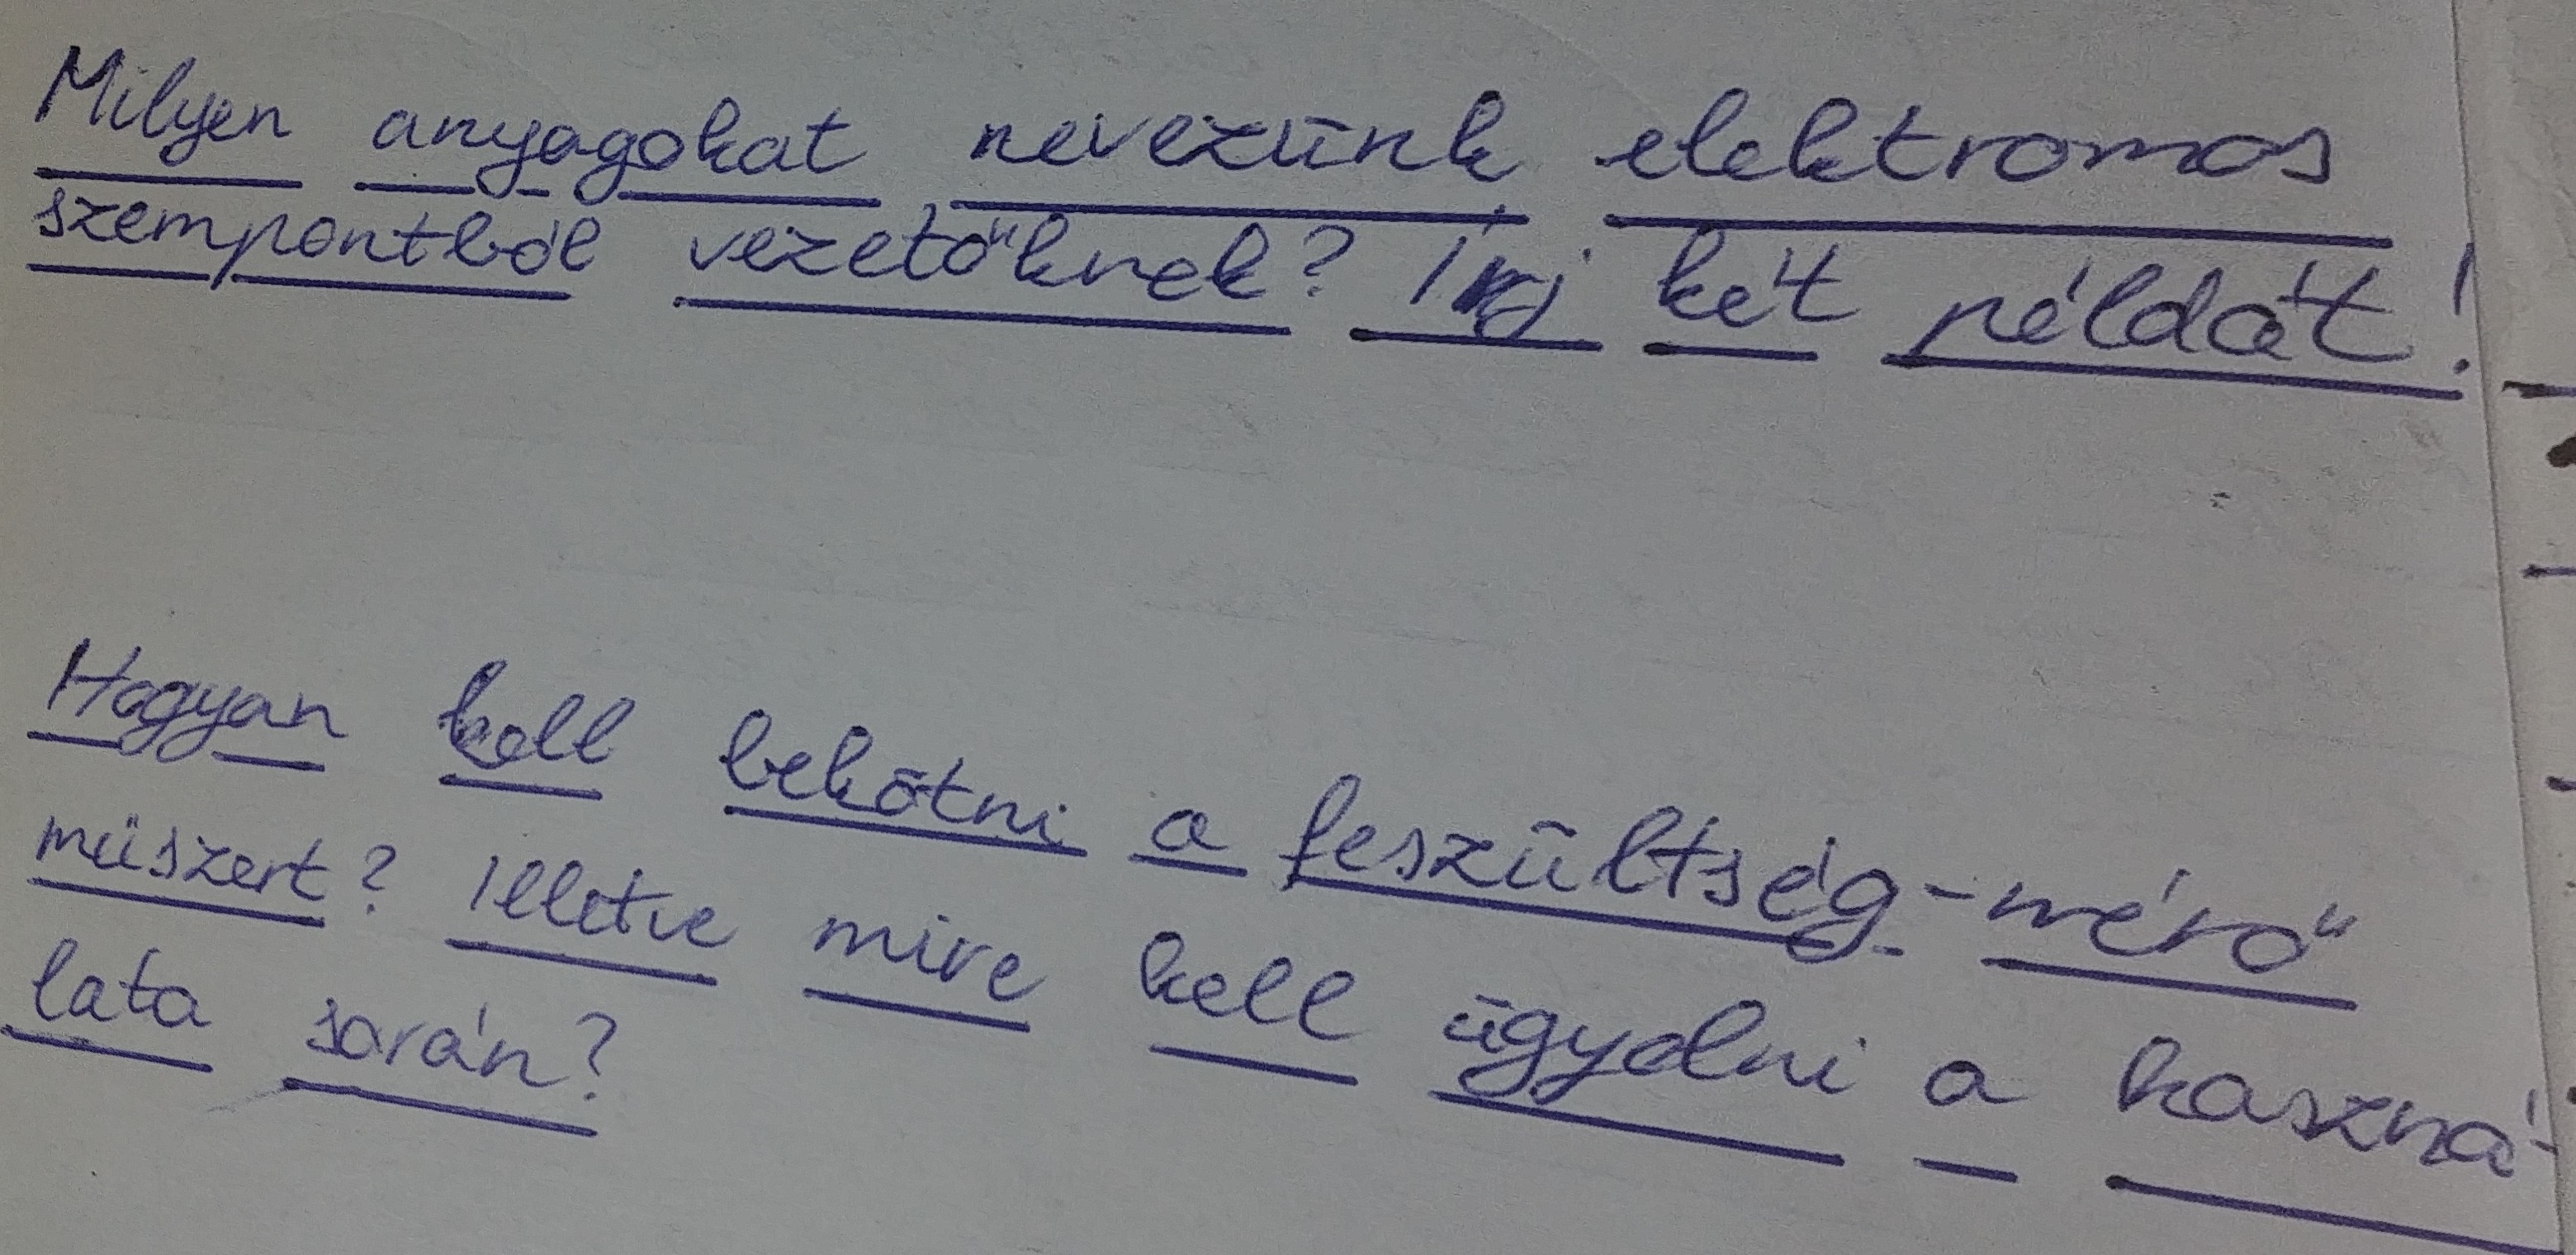 Milyen anyagokat nevezünk elektromos
szempontból vezetőknek? Írj két példát!
Hogyan kell bekötni a feszültség-mérő
műszert? Illetve mire kell ügyelni a haszná-
lata során?